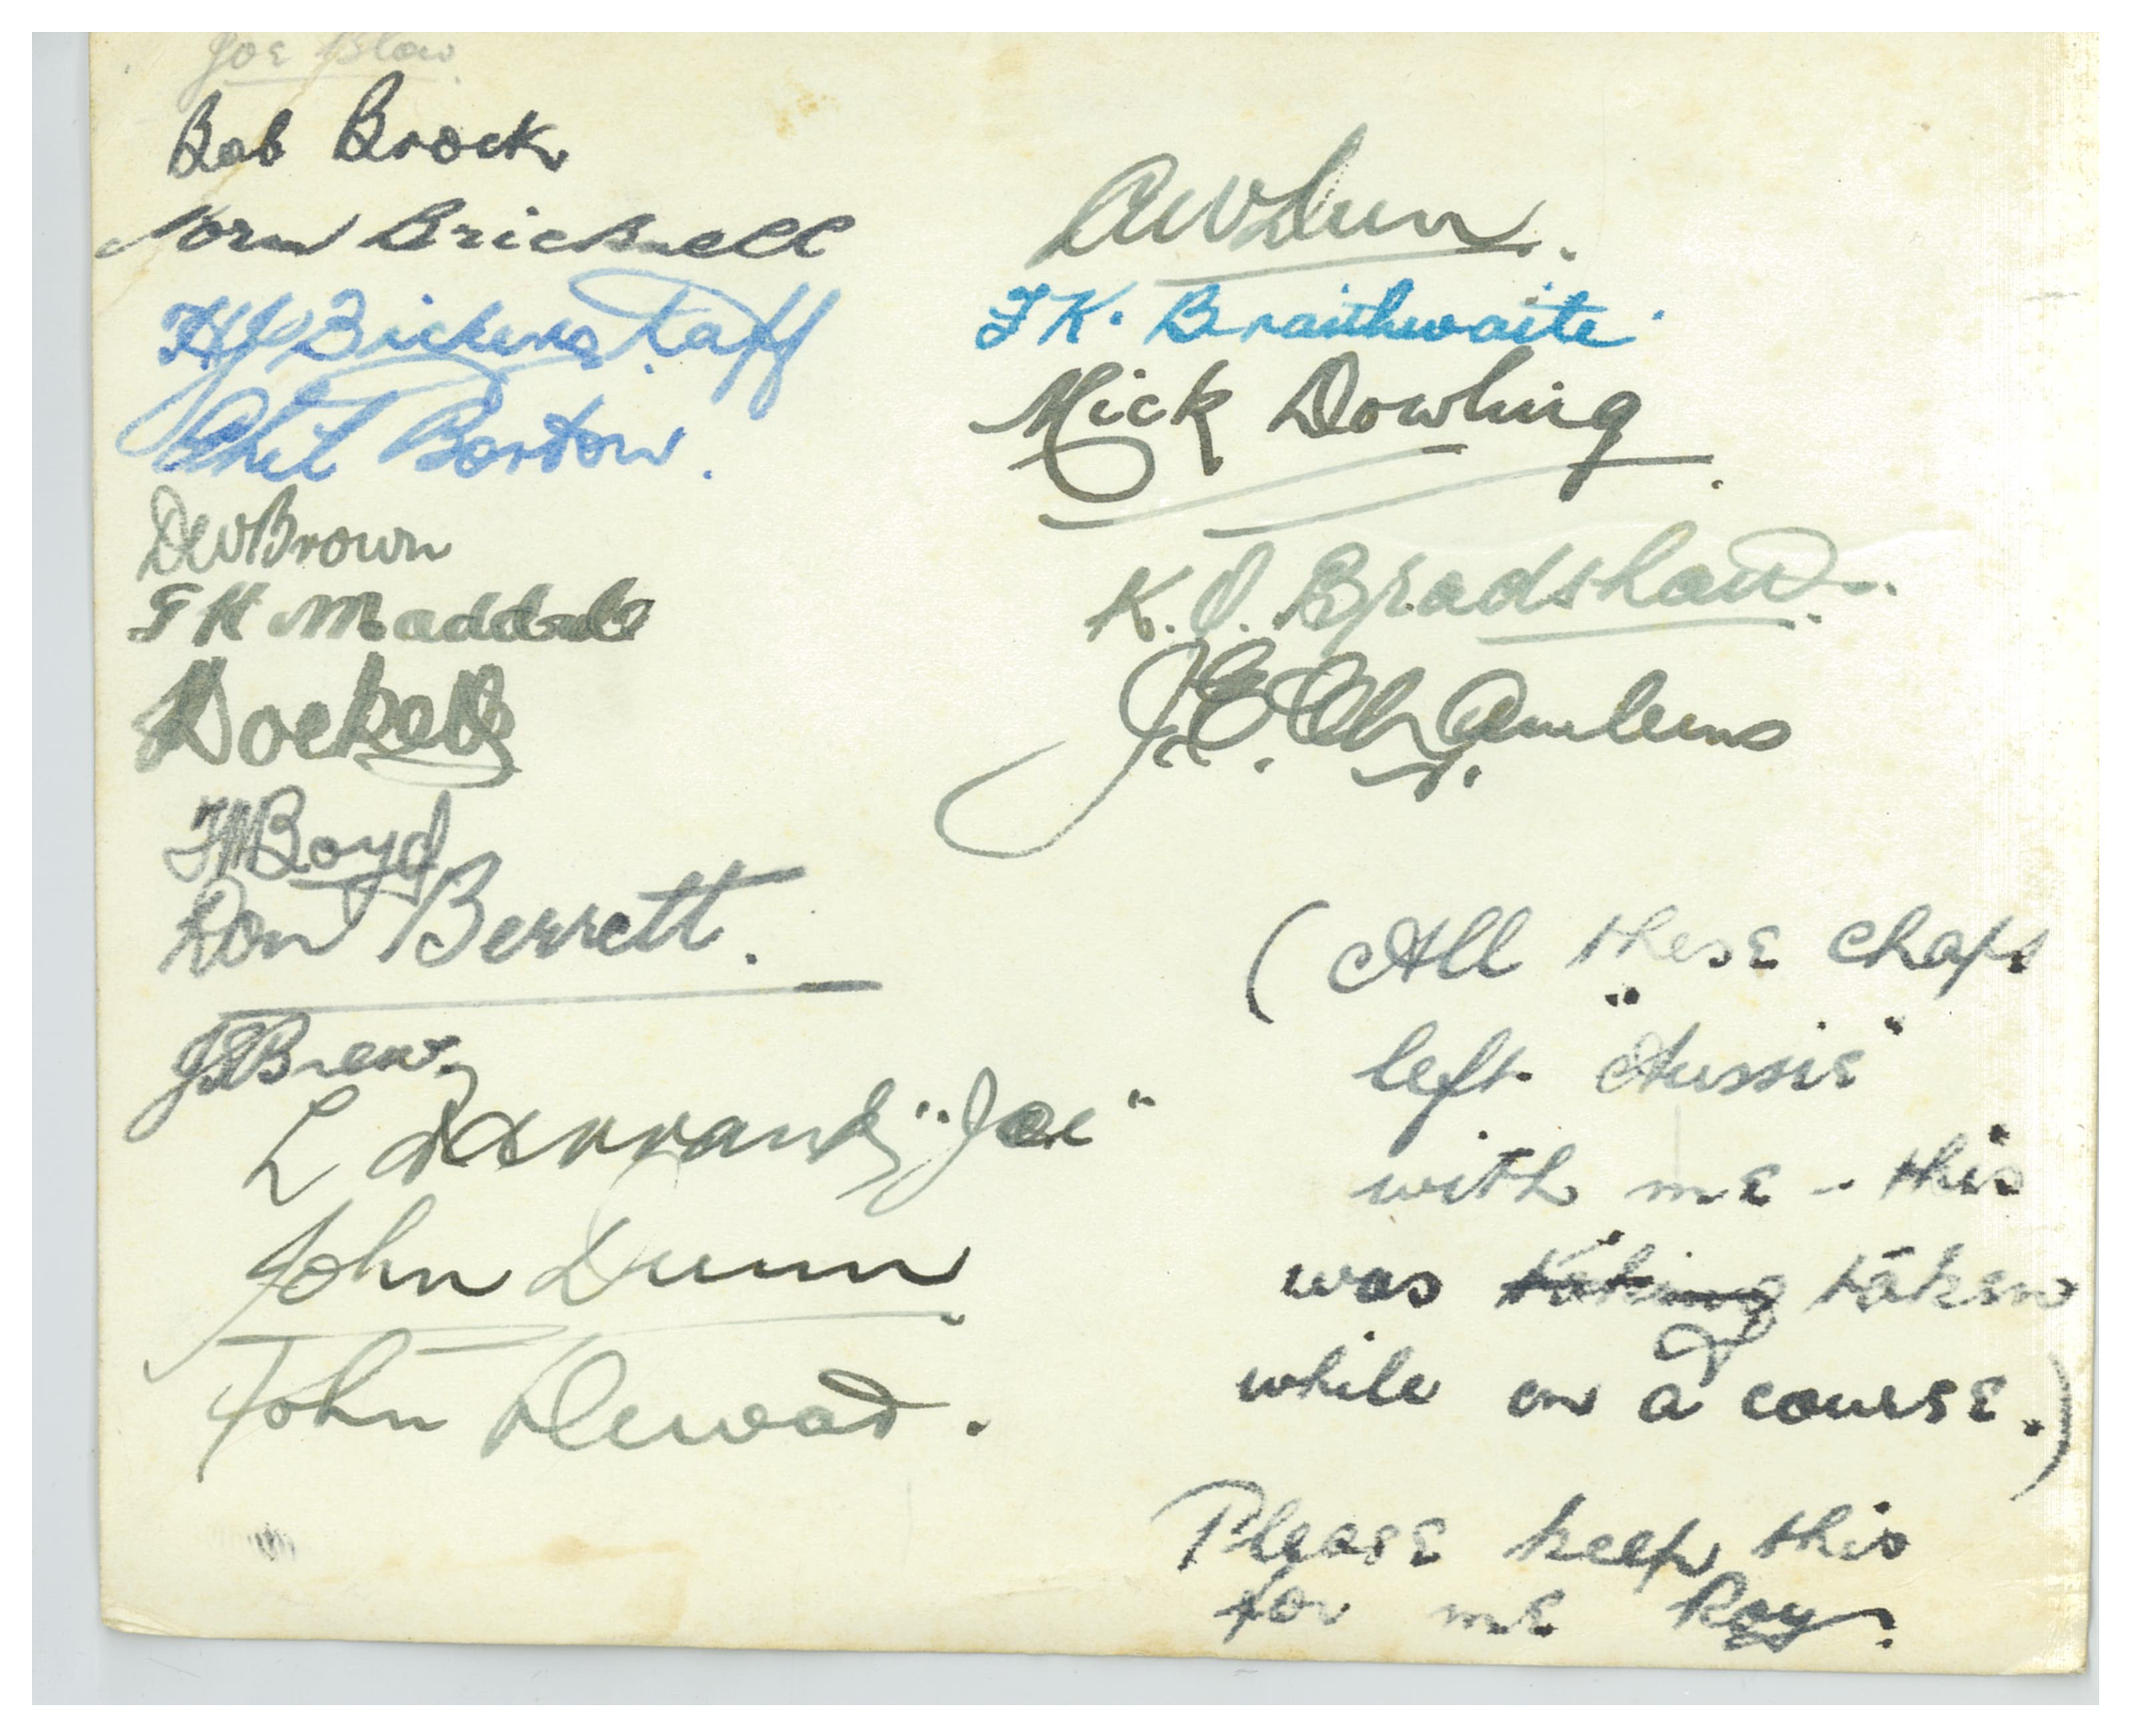 Joe Blow
Bob Brock
Norm Bricknell
Bickerstaff
Phil Borton.
DW Brown
Dockett
Boyd
Ron Berrett.
Brew
L "Joe"
John Dunn
John Dewar.
AW Dun.
K. Braithwaite.
Mick Dowling.
K. O. Bradshaw.
J.E.
(All these chaps
left "Aussie"
with me - this
was taking taken
while on a course.)
Please keep this
for me Roy.